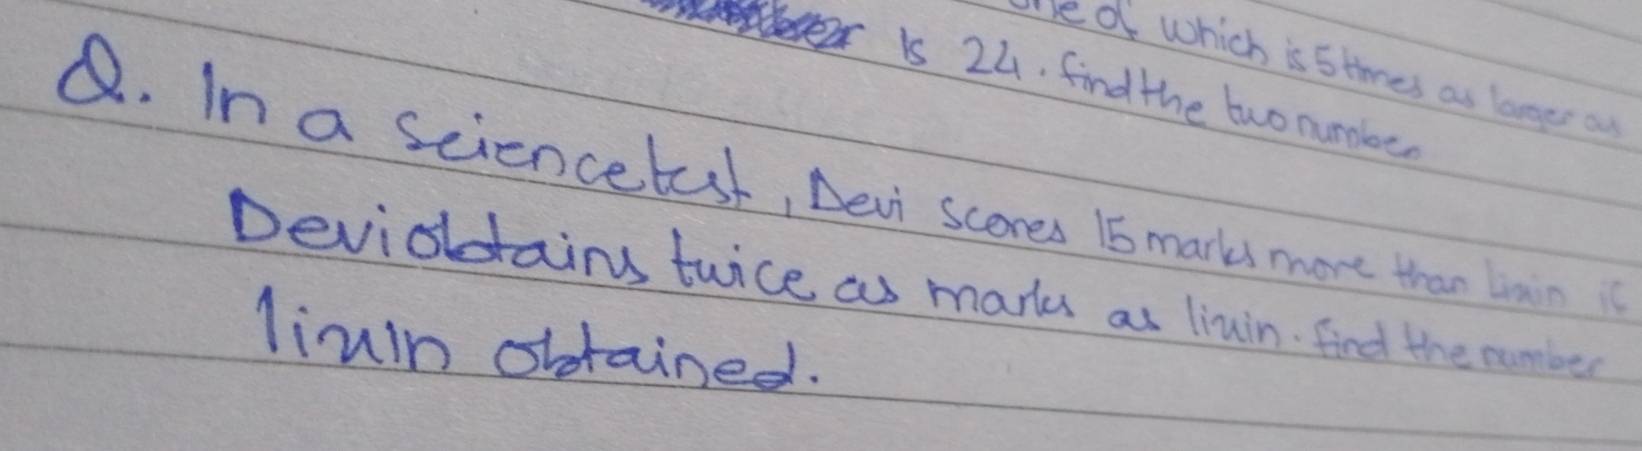 one of which is 5 times as larger as
is 24. find the two number
Q. In a science test, Devi scores 15 marks more than lixin if
Devi obtains twice as marks as lixin. find the number
lixin obtained.